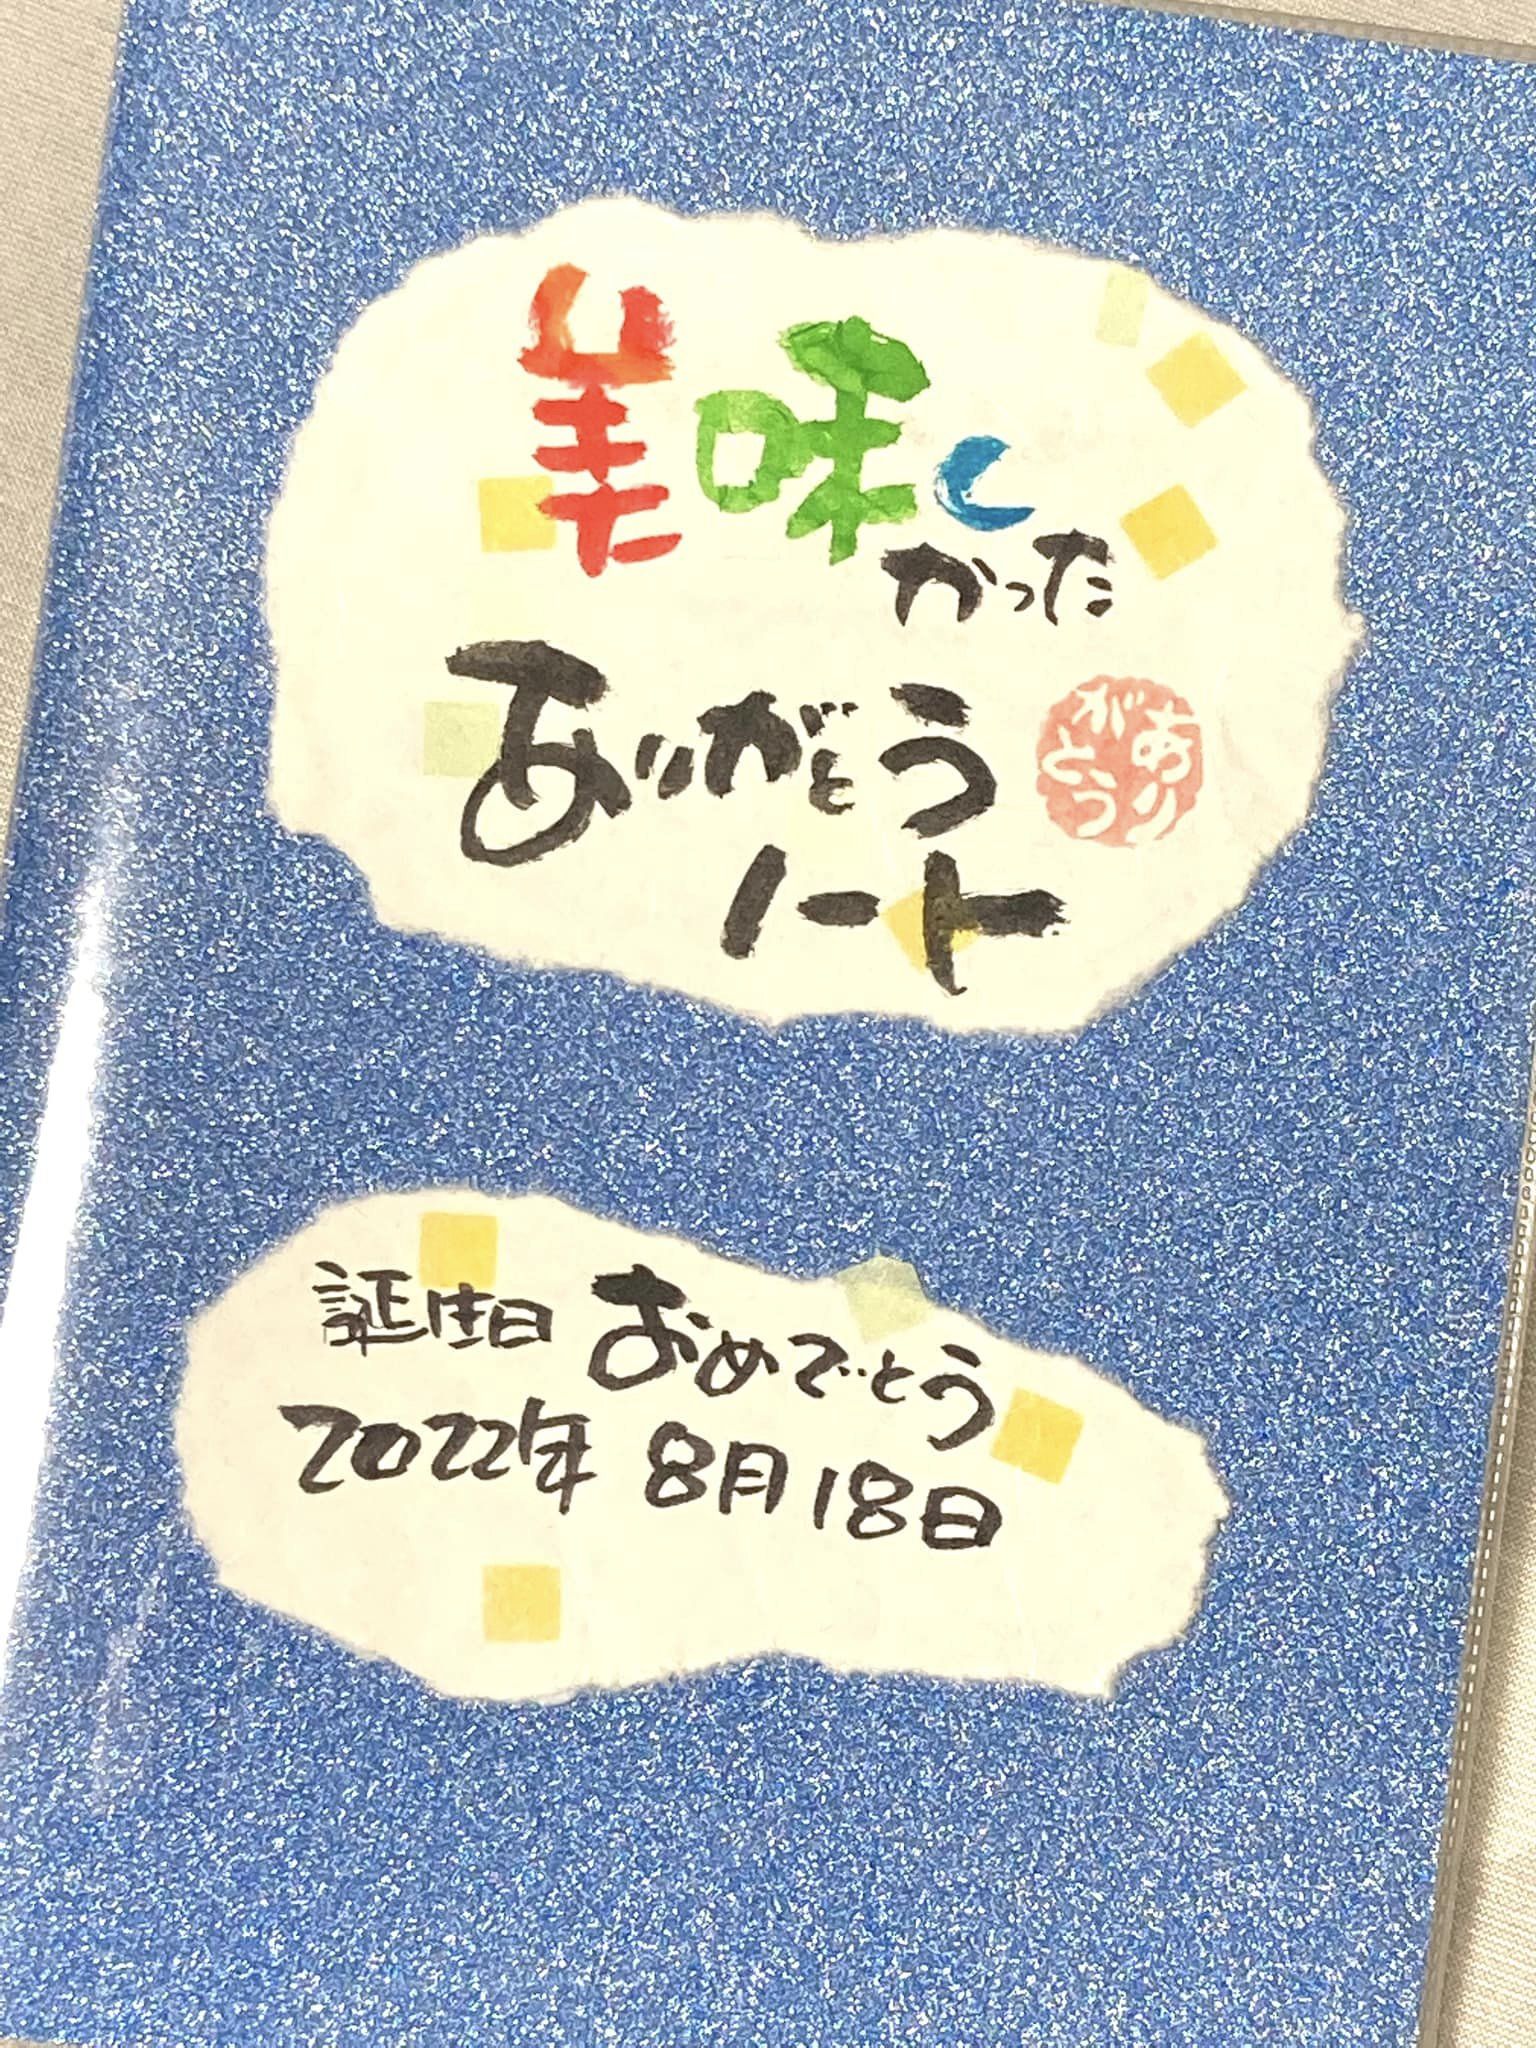 美味し
かった
ありがとう
ありがとう
ノート
誕生日 おめでとう
2022年 8月18日